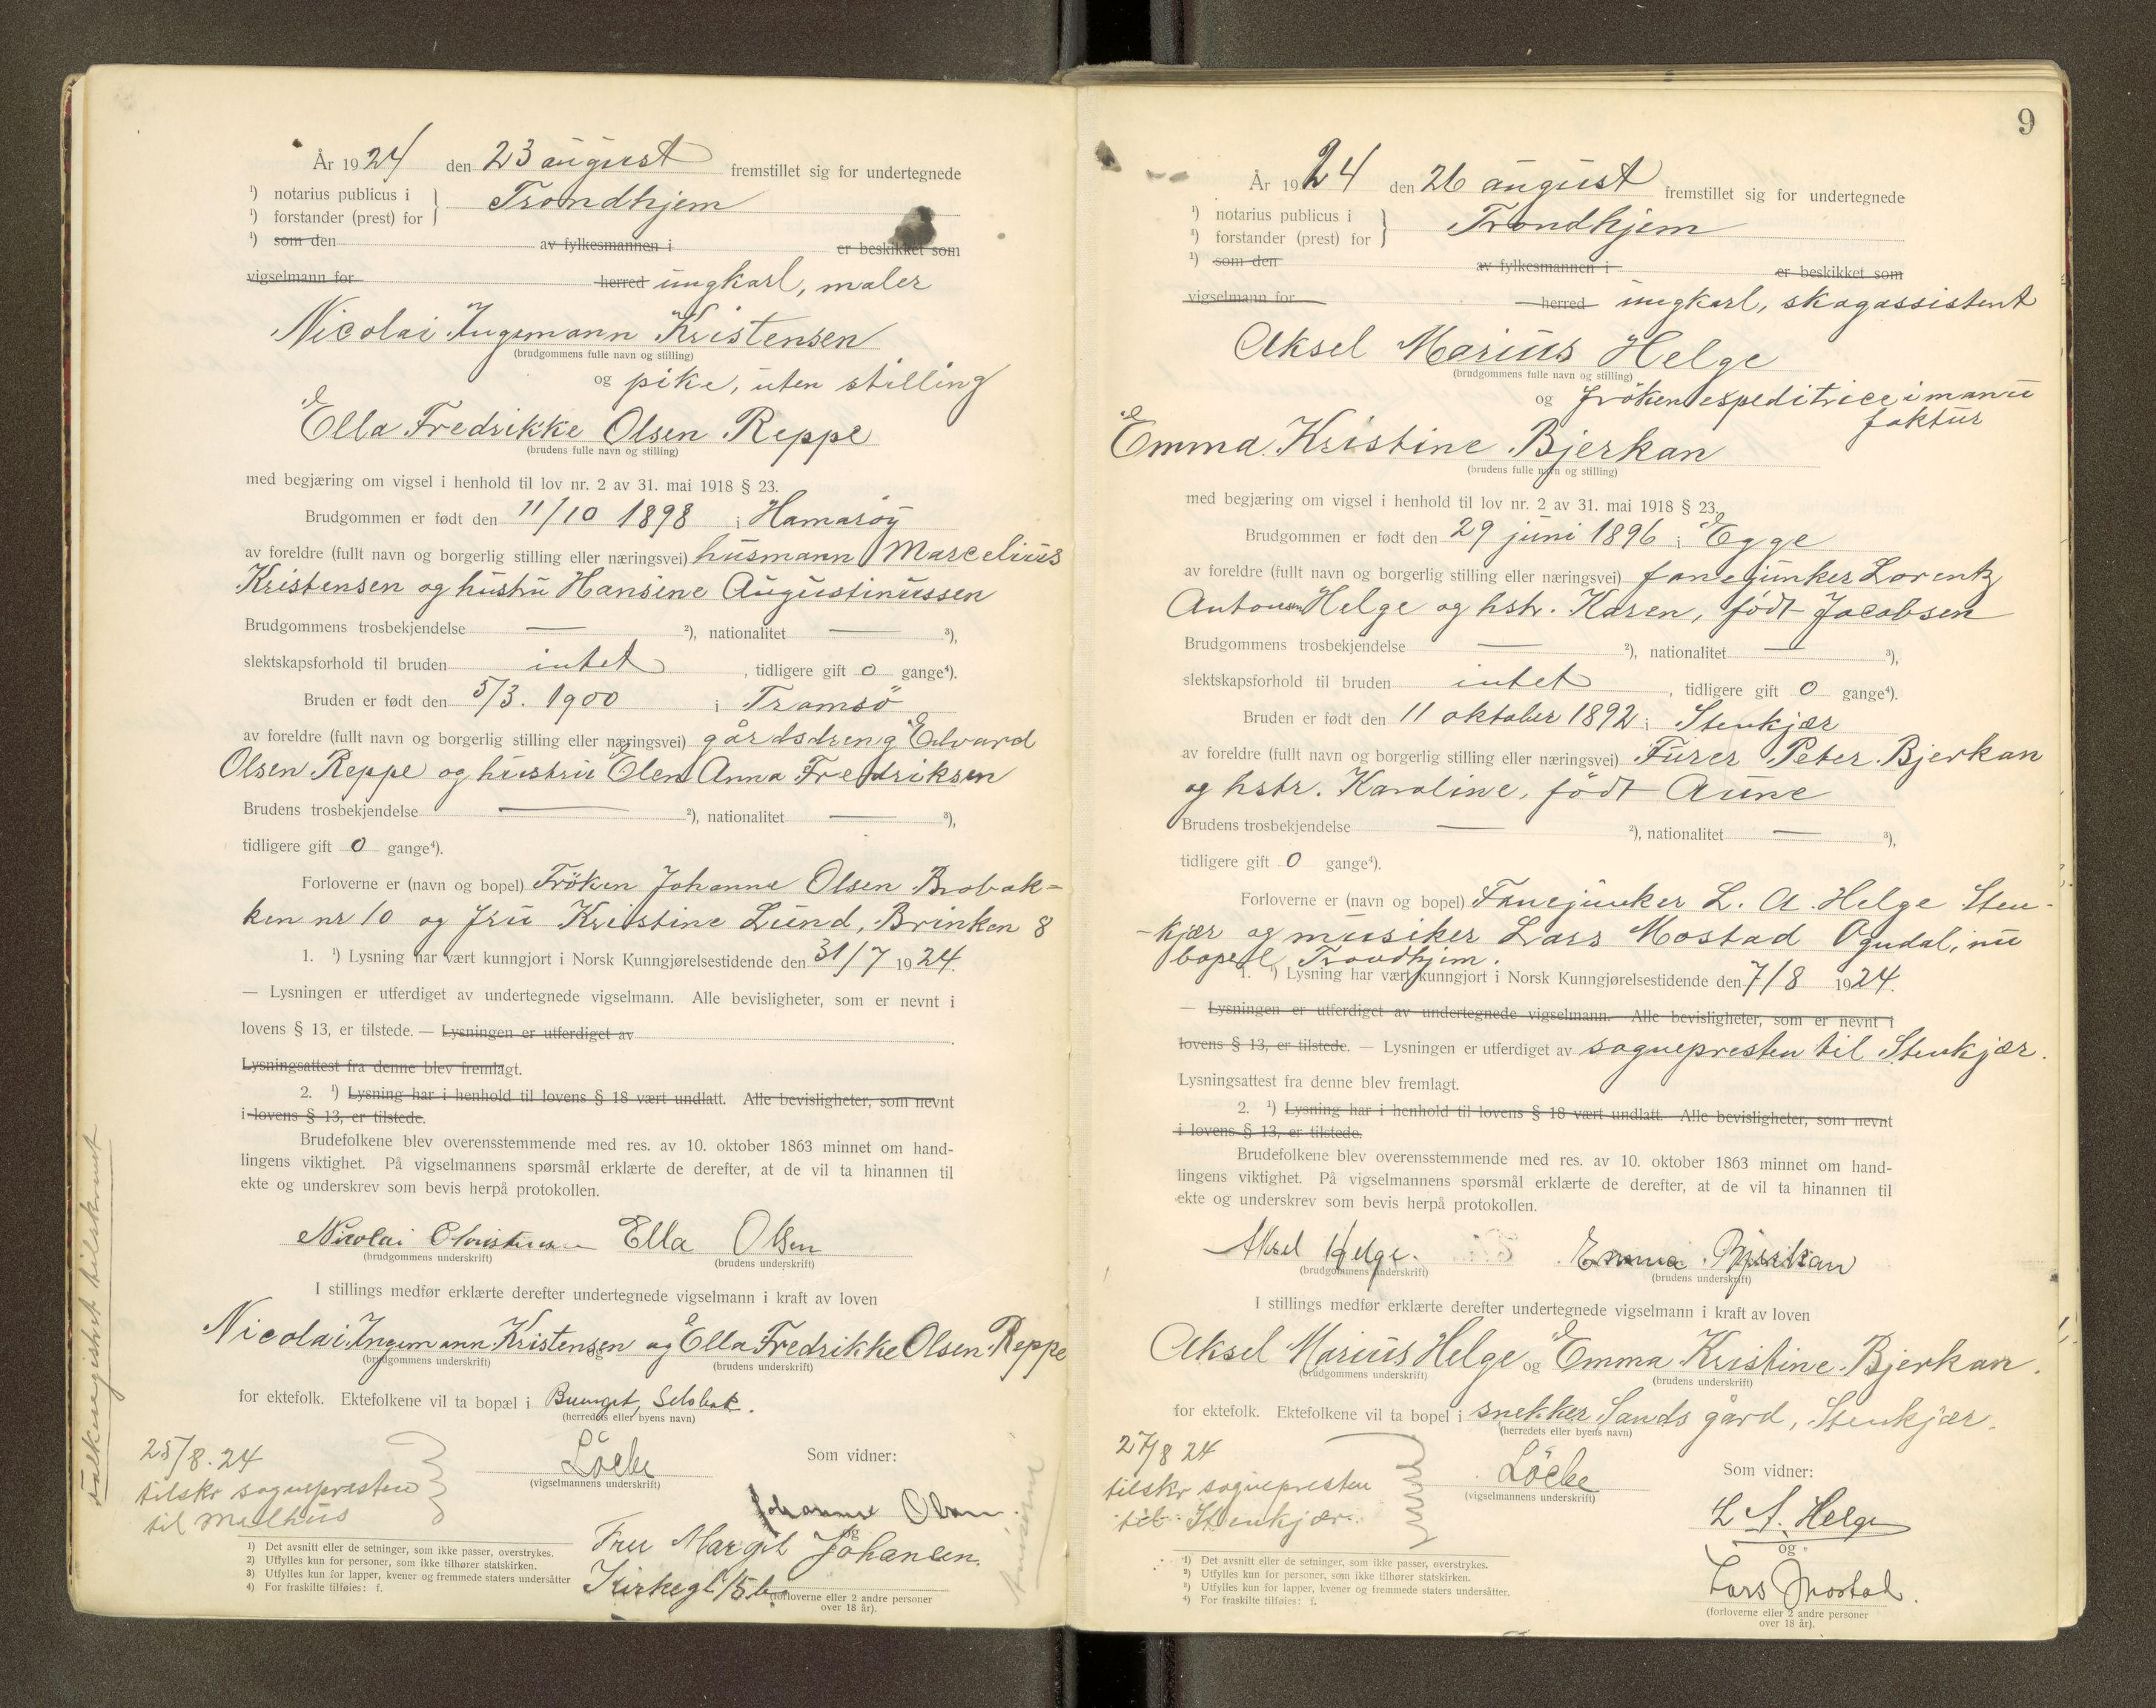 År 1924 den 23 august fremstillet sig for undertegnede
¹) notarius publicus i
¹) forstander (prest) for } Trondhjem
¹) som den av fylkesmannen i er beskikket som
vigselmann for herred ungkarl, maler
Nicolai Ingemann Kristensen
(brudgommens fulle navn og stilling)
og pike, uten stilling
Ella Fredrikke Olsen Reppe
(brudens fulle navn og stilling)
med begjæring om vigsel i henhold til lov nr. 2 av 31. mai 1918 § 23.
Brudgommen er født den 11/10 1898 i Hamarøy
av foreldre (fullt navn og borgerlig stilling eller næringsvei) husmann Marcelius
Kristensen og hustru Hansine Augustinussen
Brudgommens trosbekjendelse — ²), nationalitet — ³),
slektskapsforhold til bruden intet, tidligere gift 0 gange⁴).
Bruden er født den 5/3. 1900 i Tromsö
av foreldre (fullt navn og borgerlig stilling eller næringsvei) gårdsdreng Edvard
Olsen Reppe og hustru Elen Anna Fredriksen
Brudens trosbekjendelse — ²), nationalitet — ³),
tidligere gift 0 gange⁴).
Forloverne er (navn og bopel) Fröken Johanne Olsen Brobak=
ken nr 10 og fru Kristine Lund, Brinken 8
1. ¹) Lysning har vært kunngjort i Norsk Kunngjørelsestidende den 31/7 1924.
— Lysningen er utferdiget av undertegnede vigselmann. Alle bevisligheter, som er nevnt i
lovens § 13, er tilstede. — Lysningen er utferdiget av
Lysningsattest fra denne blev fremlagt.
2. ¹) Lysning har i henhold til lovens § 18 vært undlatt. Alle bevisligheter, som nevnt
i lovens § 13, er tilstede.
Brudefolkene blev overensstemmende med res. av 10. oktober 1863 minnet om hand-
lingens viktighet. På vigselmannens spørsmål erklærte de derefter, at de vil ta hinannen til
ekte og underskrev som bevis herpå protokollen.
Nicolai Christensen Ella Olsen
(brudgommens underskrift) (brudens underskrift)
I stillings medfør erklærte derefter undertegnede vigselmann i kraft av loven
Nicolai Ingemann Kristensen og Ella Fredrikke Olsen Reppe
(brudgommens underskrift) (brudens underskrift)
for ektefolk. Ektefolkene vil ta bopæl i Selsbak.
(herredets eller byens navn)
25/8.24
tilskr sognepresten
til Melhus
Löcke
(vigselmannens underskrift)
Som vidner:
Johanne Olsen.
og
Fru Margit Johansen
Kirkegt 15 b.
(forloverne eller 2 andre personer
over 18 år).
1) Det avsnitt eller de setninger, som ikke passer, overstrykes.
2) Utfylles kun for personer, som ikke tilhører statskirken.
3) Utfylles kun for lapper, kvener og fremmede staters undersåtter
4) For fraskilte tilføies: f.
Folkeregistret tilskrevet
9
År 1924 den 26 august fremstillet sig for undertegnede
¹) notarius publicus i
¹) forstander (prest) for } Trondhjem
¹) som den av fylkesmannen i er beskikket som
vigselmann for herred ungkarl, skogassistent
Aksel Marius Helge
(brudgommens fulle navn og stilling)
og fröken espeditrice i manu
faktur
Emma Kristine Bjerkan
(brudens fulle navn og stilling)
med begjæring om vigsel i henhold til lov nr. 2 av 31. mai 1918 § 23.
Brudgommen er født den 29 juni 1896 i Egge
av foreldre (fullt navn og borgerlig stilling eller næringsvei) fanejunker Lorentz
Antonsen Helge og hstr. Karen, födt Jacobsen
Brudgommens trosbekjendelse — ²), nationalitet — ³),
slektskapsforhold til bruden intet, tidligere gift 0 gange⁴).
Bruden er født den 11 oktober 1892 i Stenkjær
av foreldre (fullt navn og borgerlig stilling eller næringsvei) Furer Peter Bjerkan
og hstr. Karoline, födt Aune
Brudens trosbekjendelse — ²), nationalitet — ³),
tidligere gift 0 gange⁴).
Forloverne er (navn og bopel) Fanejunker L. A. Helge Sten-
-kjær og musiker Lars Mostad Ogndal, nu
bopel Trondhjem.
1. ¹) Lysning har vært kunngjort i Norsk Kunngjørelsestidende den 7/8 1924.
— Lysningen er utferdiget av undertegnede vigselmann. Alle bevisligheter, som er nevnt i
lovens § 13, er tilstede. — Lysningen er utferdiget av sognepresten til Stenkjær.
Lysningsattest fra denne blev fremlagt.
2. ¹) Lysning har i henhold til lovens § 18 vært undlatt. Alle bevisligheter, som nevnt
i lovens § 13, er tilstede.
Brudefolkene blev overensstemmende med res. av 10. oktober 1863 minnet om hand-
lingens viktighet. På vigselmannens spørsmål erklærte de derefter, at de vil ta hinannen til
ekte og underskrev som bevis herpå protokollen.
Aksel Helge. Emma Bjerkan
(brudgommens underskrift) (brudens underskrift)
I stillings medfør erklærte derefter undertegnede vigselmann i kraft av loven
Aksel Marius Helge og Emma Kristine Bjerkan.
(brudgommens underskrift) (brudens underskrift)
for ektefolk. Ektefolkene vil ta bopel i snekker Sands gård, Stenkjær.
(herredets eller byens navn)
27/8 24
tilskr sognepresten
til Stenkjær.
Löcke
(vigselmannens underskrift)
Som vidner:
L A. Helge
og
Lars Mostad.
(forloverne eller 2 andre personer
over 18 år).
¹) Det avsnitt eller de setninger, som ikke passer, overstrykes.
²) Utfylles kun for personer, som ikke tilhører statskirken.
³) Utfylles kun for lapper, kvener og fremmede staters undersåtter.
⁴) For fraskilte tilføies: f.